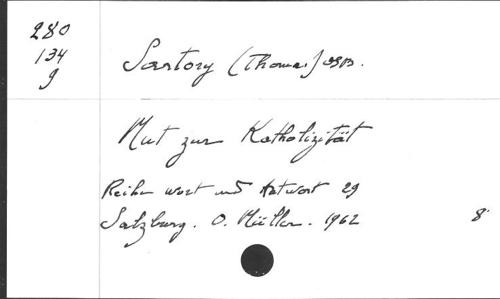 280
134
g
Sartory (Thomas) OSB.
Mut zur Katholizität
Reihe wort und Antwort 29
Salzburg. O. Müller. 1962 8°